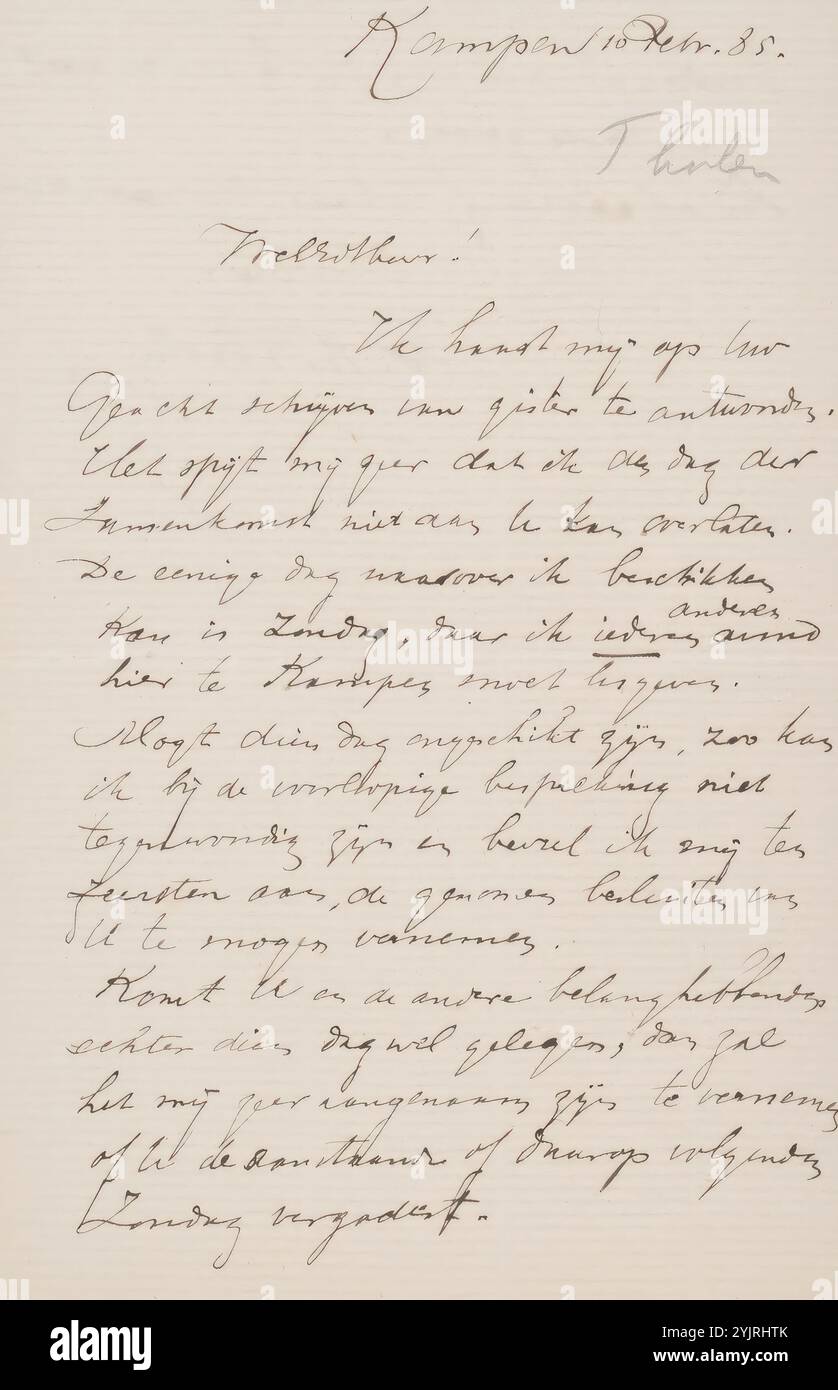 Kampen 10 Febr. 85.
Tholen
WelEdHeer!
Ik haast mij op Uw
Geacht schrijven van gister te antwoorden.
Het spijt mij zeer dat ik den dag der
Zamenkomst niet aan U kan overlaten.
De eenige dag waarover ik beschikken
anderen
kan is Zondag, daar ik iederen avond
hier te Kampen moet lesgeven.
Mogt dien dag ongeschikt zijn, zoo kan
ik bij de voorloopige bespreking niet
tegenwoordig zijn en beveel ik mij ten
zeersten aan, de genomen besluiten van
U te mogen vernemen.
Komt U en de andere belanghebbenden
echter dien dag wel gelegen, dan zal
het mij zeer aangenaam zijn te vernemen
of U de aanstaande of daarop volgenden
Zondag vergadert.
alamy
Image ID: 2YJRHTK
www.alamy.com